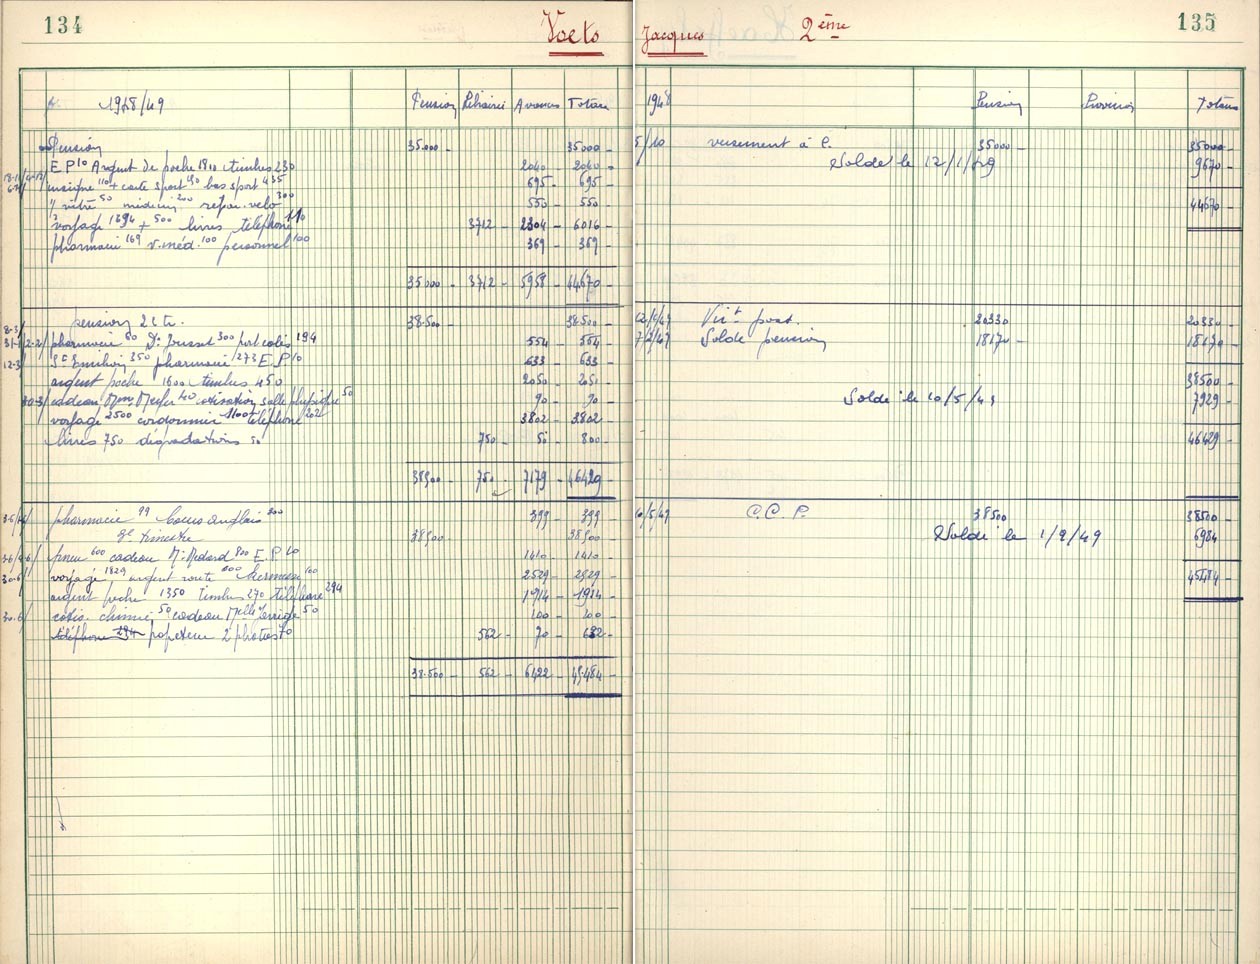 134
Voets
Jacques 2ème
135
1948/49 Pension Librairie Avances Totaux
Pension 35.000 - 35000 -
E P 10 Argent de poche 1800 timbres 230 2040 - 2040 -
insigne 110 + carte sport 150 bas sport 435 695 - 695 -
" vitre 50 médecin 200 répar. velo 300 550 - 550 -
voyage 1694 + 500 livres, téléphone 110 3712 - 2304 - 6016 -
pharmacie 169 v. méd. 100 personnel 100 369 - 369 -
35000 - 3712 - 5958 - 44670 -
pension 2e tr. 38.500 - 38.500 -
pharmacie 60 Dr 300 port colis 194 554 - 554 -
St Emilion 350 pharmacie 273 E.P. 10 633 - 633 -
argent poche 1600 timbres 450 2050 - 2050 -
cadeau 40 cotisation salle physique 50 90 - 90 -
voyage 2500 cordonnier 1100 téléphone 202 3802 - 3802 -
livres 750 dégradations 50 750 - 50 - 800 -
38500 - 750 - 7179 - 46429 -
pharmacie 99 Cours anglais 300 399 - 399 -
3e trimestre 38500 - 38500 -
pneu 600 cadeau Mr Medard 800 E.P. 10 1410 - 1410 -
voyage 1829 argent route 600 kermesse 100 2529 - 2529 -
argent poche 1350 timbres 270 téléphone 294 1914 - 1914 -
cotis. chimie 50 cadeau Melle 50 100 - 100 -
téléphone 294 papeterie 2 photos 70 562 - 70 - 632 -
38.500 - 562 - 6422 - 45.484 -
1948 Pension Provision Totaux
5/10 versement à C. 35000 - 35000 -
Solde le 12/1/49 9670 -
44670 -
Virt post. 20330 20330 -
Solde pension 18170 - 18170 -
38500 -
Solde le 10/5/49 7929 -
46429 -
C.C.P. 38500 38500 -
Solde le 1/9/49 6984 -
45484 -